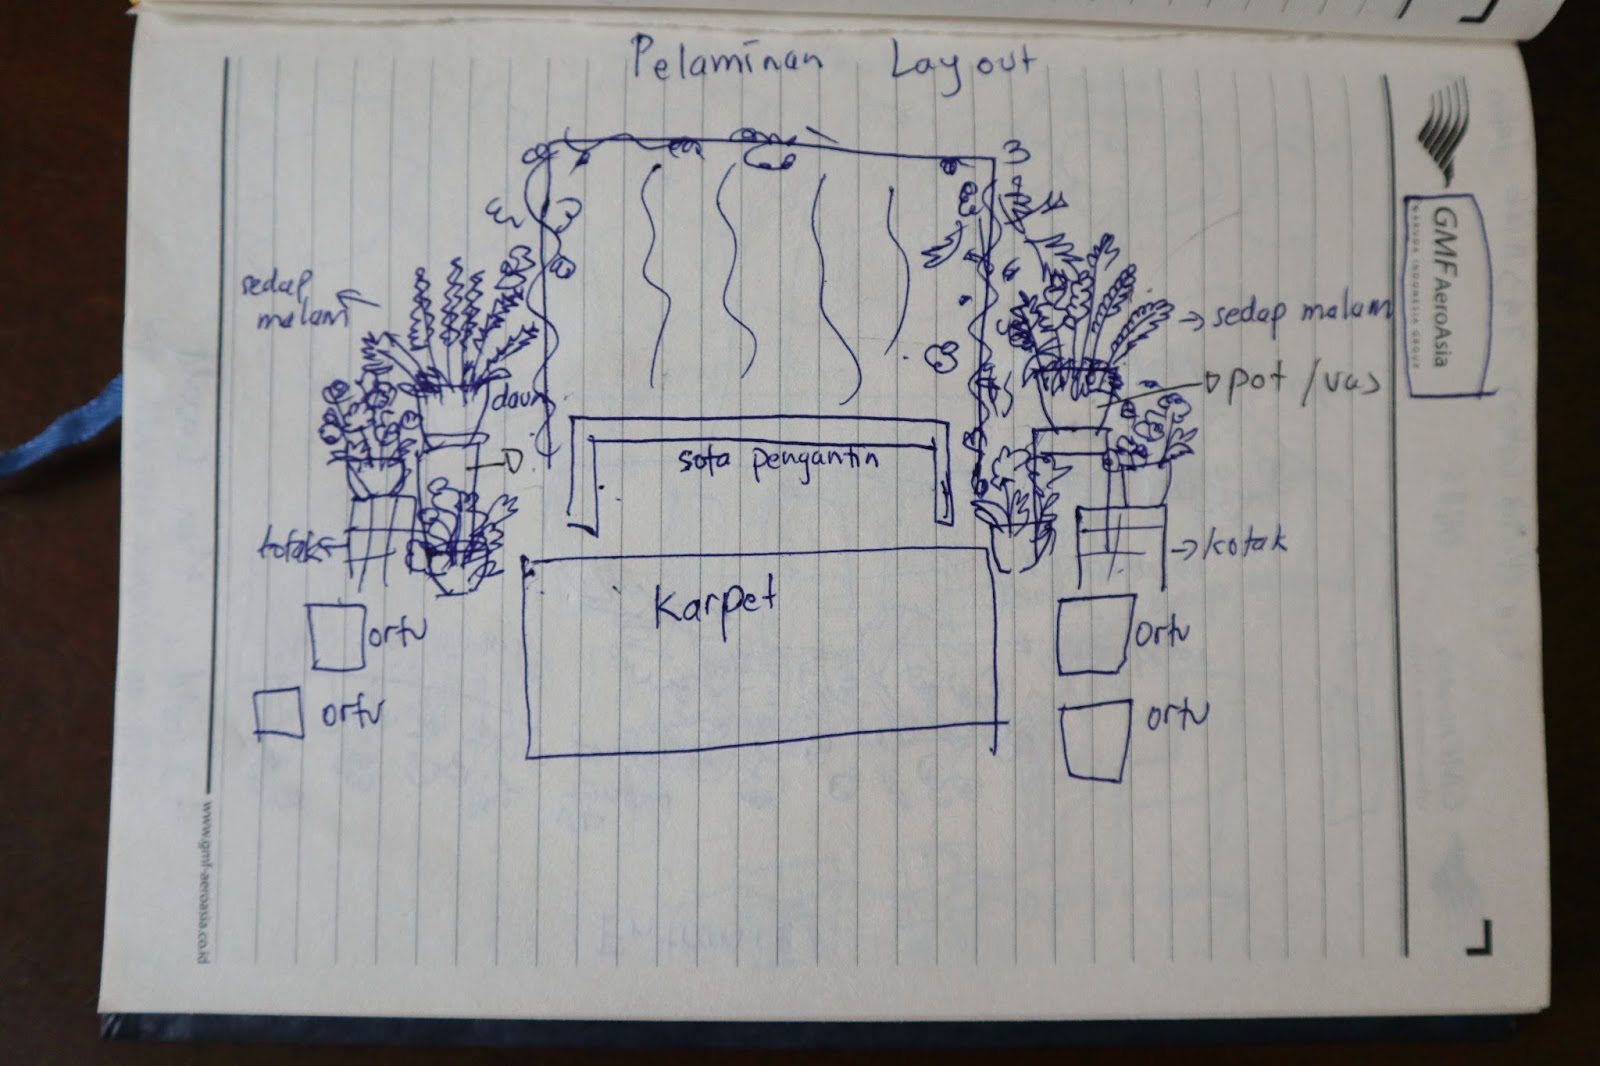 Pelaminan Layout
sedap
malam
sedap malam
pot / vas
daun
sofa pengantin
kotak
kotak
Karpet
ortu
ortu
ortu
ortu
GMF AeroAsia
GARUDA INDONESIA GROUP
www.gmf-aeroasia.co.id